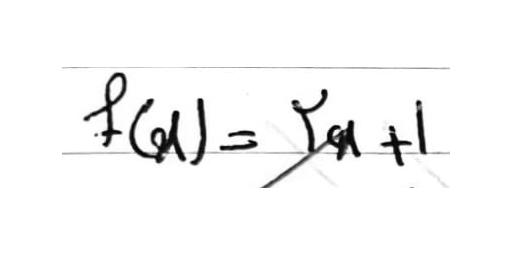 f(x) = ۲x + 1